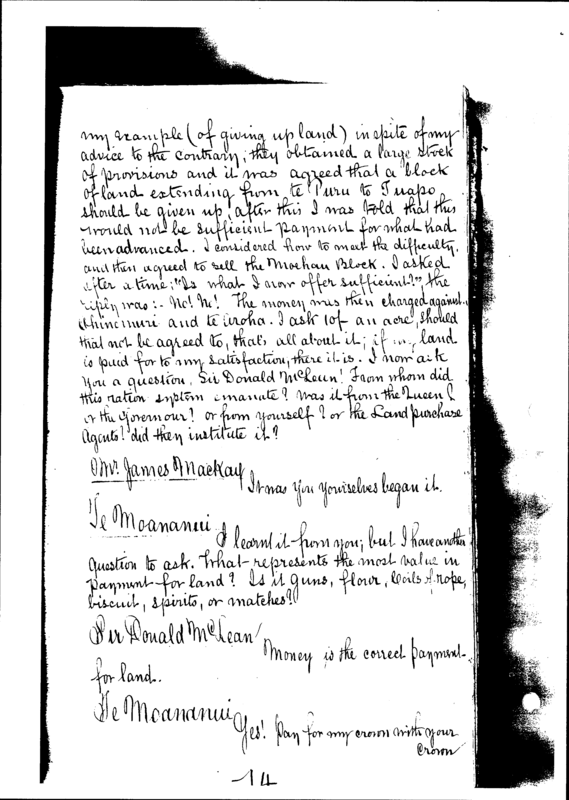 my example (of giving up land) in spite of my
advice to the contrary; they obtained a large stock
of provisions and it was agreed that a block
of land extending from te Puru to Tuapo
should be given up, after this I was told that this
would not be sufficient payment for what had
been advanced. I considered how to meet the difficulty,
and then agreed to sell the Moehau Block. I asked
after a time; "Is what I now offer sufficient?", the
reply was:- No! No! The money was then charged against
Ohinemuri and te Aroha. I ask 10/- an acre, should
that not be agreed to, that's all about it; if my land
is paid for to my satisfaction, there it is. I now ask
you a question, Sir Donald McLean! From whom did
this ration system emanate? Was it from the Queen?
or the Governour? or from yourself? or the Land purchase
Agents? did they institute it?
Mr. James Mackay
It was you yourselves began it.
Te Moananui
I learnt it from you; but I have another
question to ask. What represents the most value in
payment for land? Is it guns, flour, Coils of rope,
biscuit, spirits, or matches?
Sir Donald McLean
Money is the correct payment
for land.
Te Moananui
Yes! Pay for my crown with your
Crown
14